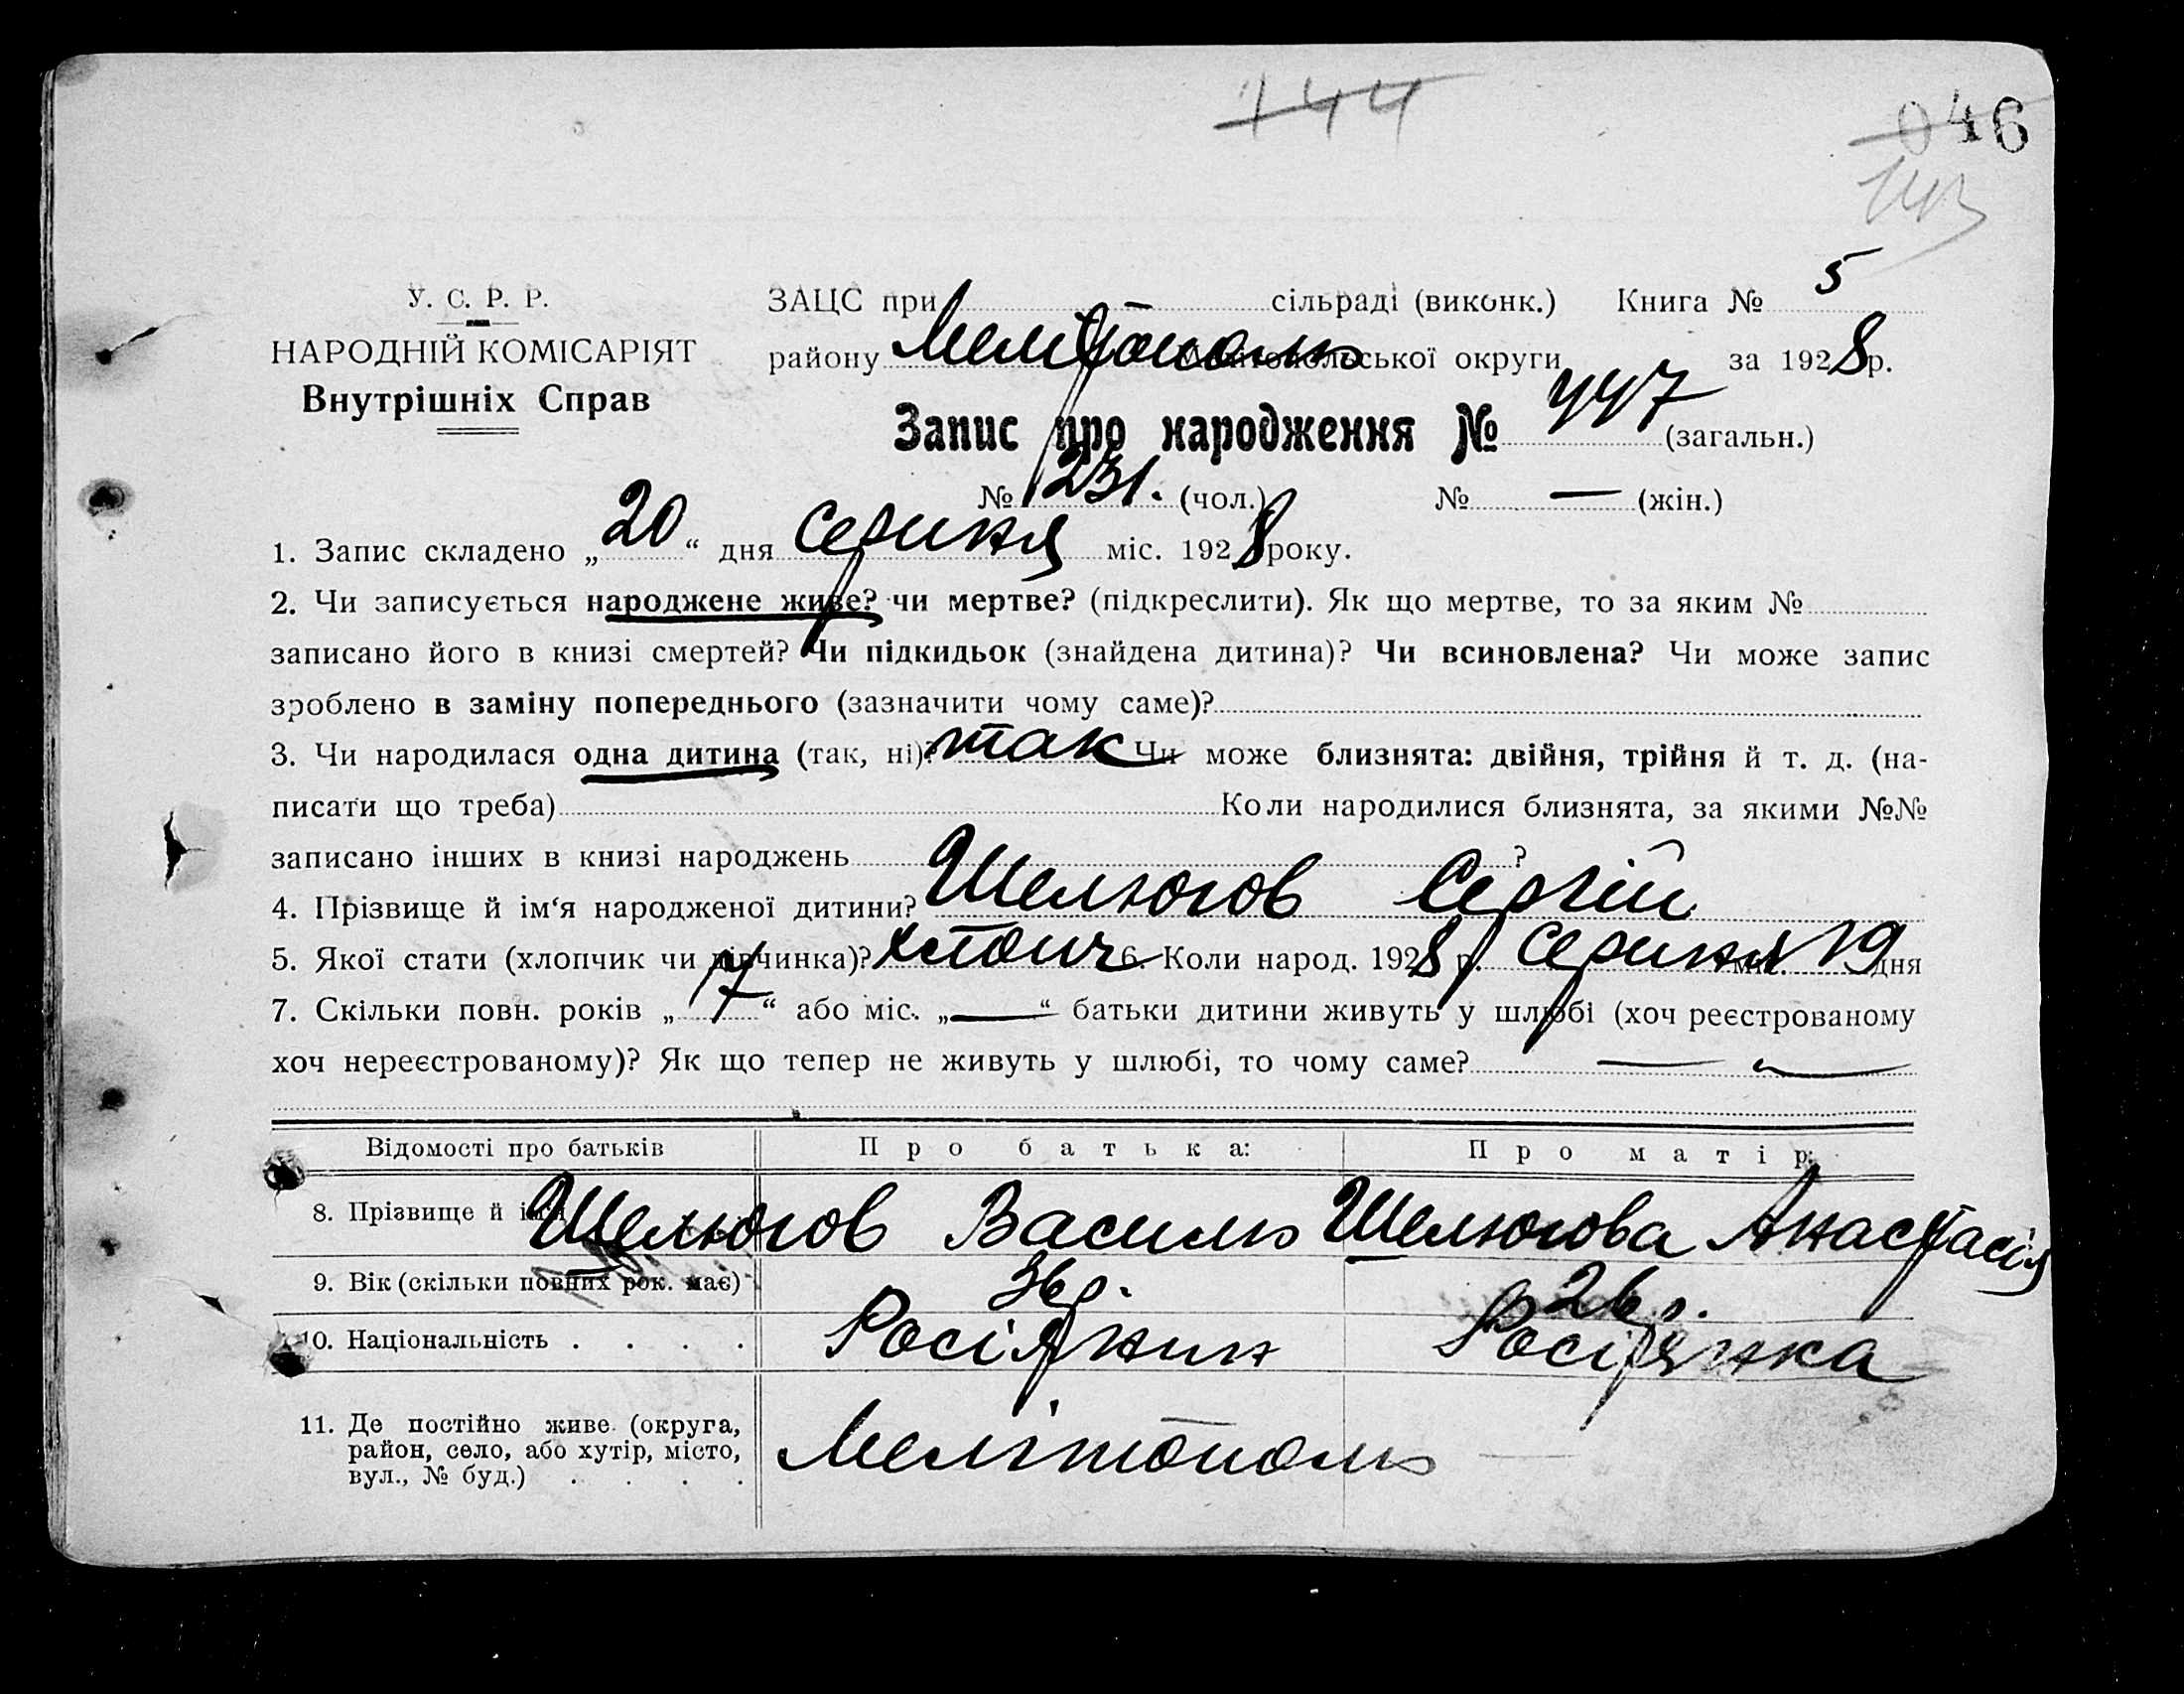 144
046
143
У. С. Р. Р.
НАРОДНІЙ КОМІСАРІЯТ
Внутрішніх Справ
ЗАЦС при сільраді (виконк.) Книга № 5
району Мелітополь Мелітопольської округи за 1928 р.
Запис про народження № 447 (загальн.)
№ 231. (чол.) № — (жін.)
1. Запис складено „20“ дня серпня міс. 1928 року.
2. Чи записується народжене живе? чи мертве? (підкреслити). Як що мертве, то за яким №
записано його в книзі смертей? Чи підкидьок (знайдена дитина)? Чи всиновлена? Чи може запис
зроблено в заміну попереднього (зазначити чому саме)?
3. Чи народилася одна дитина (так, ні)? так Чи може близнята: двійня, трійня й т. д. (на-
писати що треба) Коли народилися близнята, за якими №№
записано інших в книзі народжень ?
4. Прізвище й ім‘я народженої дитини? Шелюгов Сергій
5. Якої стати (хлопчик чи дівчинка)? хлопч 6. Коли народ. 1928 р. серпня міс. 19 дня
7. Скільки повн. років „7“ або міс. „—“ батьки дитини живуть у шлюбі (хоч реєстрованому
хоч нереєстрованому)? Як що тепер не живуть у шлюбі, то чому саме? — —
Відомості про батьків Про батька: Про матір:
8. Прізвище й ім‘я Шелюгов Василь Шелюгова Анастасія
9. Вік (скільки повних рок. має) 36 р. 26 р.
10. Національність . . . . Росіянин Росіянка
11. Де постійно живе (округа,
район, село, або хутір, місто,
вул., № буд.) . . . . Мелітополь —